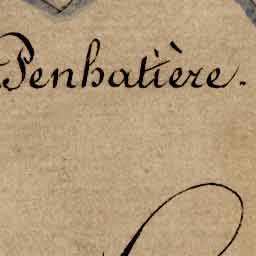 Penhatière.